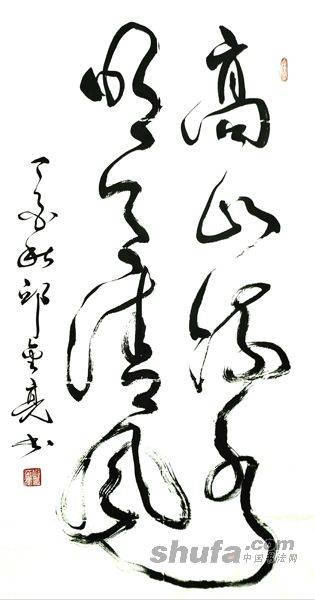 高山流水
明月清风
丁亥秋邱亮书
shufa.com
中国书法网